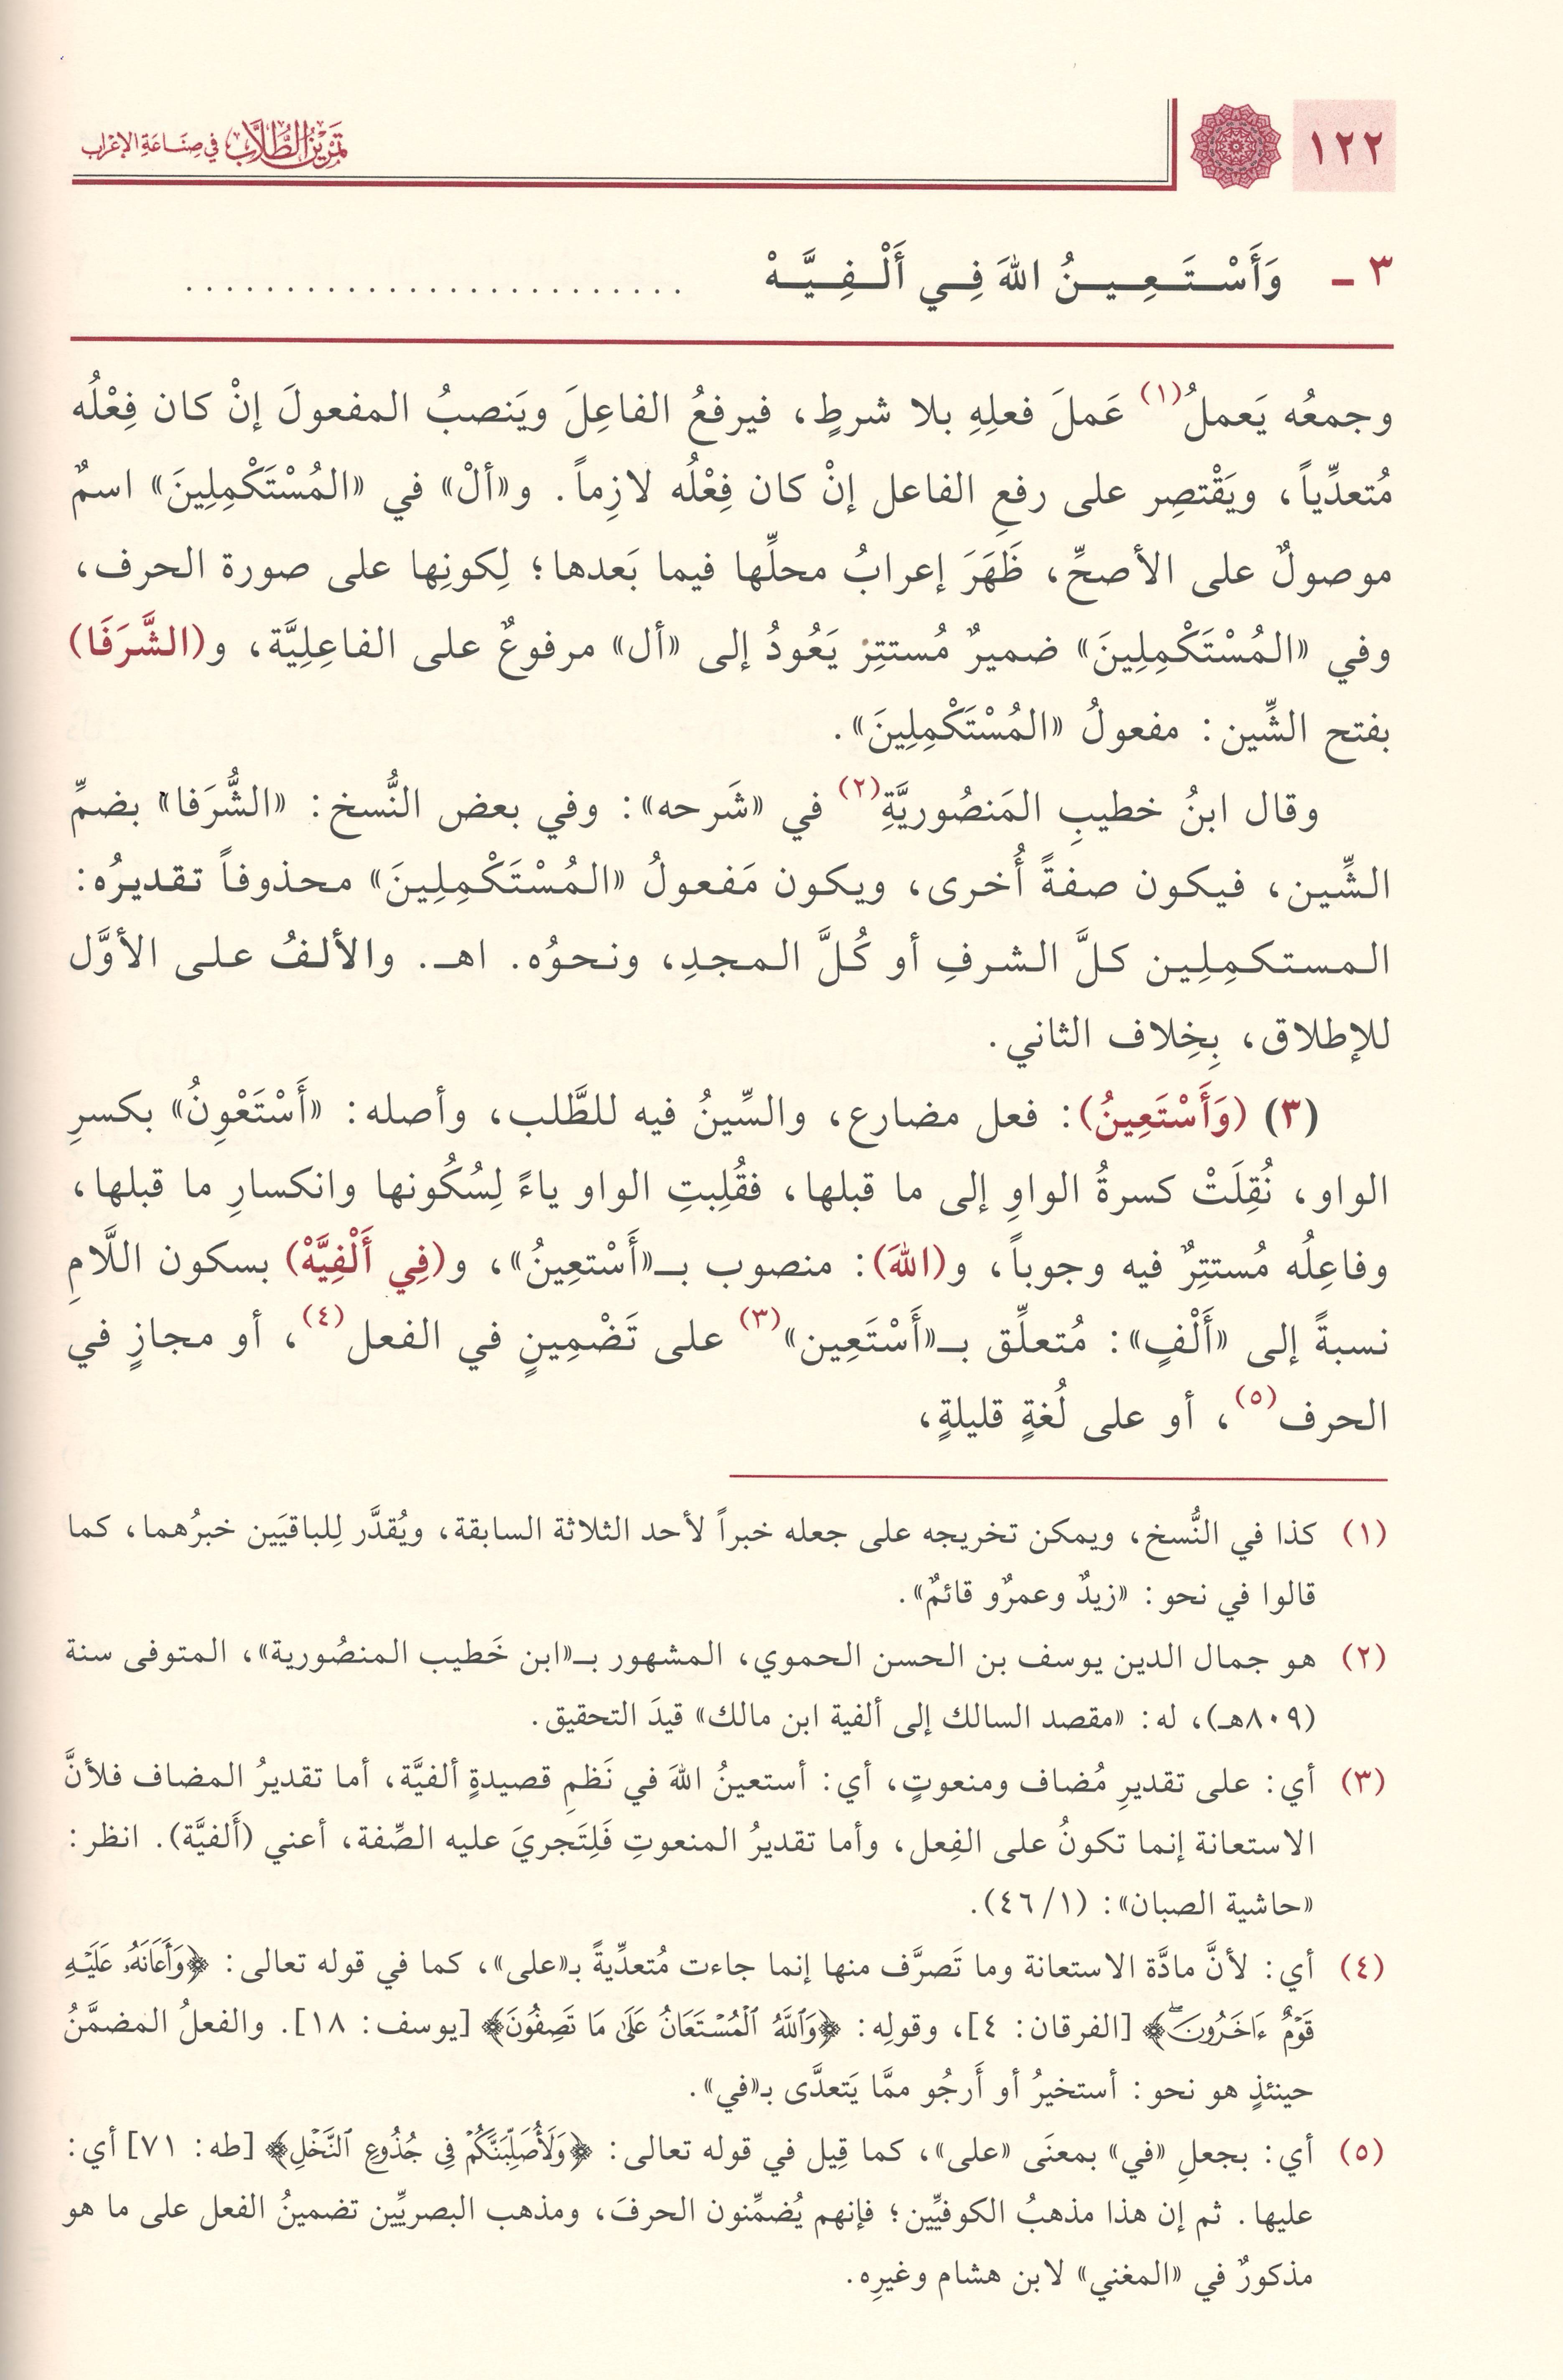 ١٢٢
تمرين الطلاب في صناعة الإعراب
٣ - وَأَسْتَعِينُ اللهَ فِي أَلْفِيَّهْ ..........................
وجمعُه يَعملُ(١) عَملَ فعلِهِ بلا شرطٍ، فيرفعُ الفاعِلَ ويَنصبُ المفعولَ إنْ كان فِعْلُه
مُتعدِّياً، ويَقْتصِر على رفعِ الفاعل إنْ كان فِعْلُه لازِماً. و«ألْ» في «المُسْتَكْمِلِينَ» اسمٌ
موصولٌ على الأصحِّ، ظَهَرَ إعرابُ محلِّها فيما بَعدها؛ لِكونِها على صورة الحرف،
وفي «المُسْتَكْمِلِينَ» ضميرٌ مُستتِرٌ يَعُودُ إلى «أل» مرفوعٌ على الفاعِلِيَّة، و(الشَّرَفَا)
بفتح الشِّين: مفعولُ «المُسْتَكْمِلِينَ».
وقال ابنُ خطيبِ المَنصُوريَّةِ(٢) في «شَرحه»: وفي بعض النُّسخ: «الشُّرَفا» بضمِّ
الشِّين، فيكون صفةً أُخرى، ويكون مَفعولُ «المُسْتَكْمِلِينَ» محذوفاً تقديرُه:
المستكمِلِين كلَّ الشرفِ أو كُلَّ المجدِ، ونحوُه. اهـ. والألفُ على الأوَّل
للإطلاق، بِخِلاف الثاني.
(٣) (وَأَسْتَعِينُ): فعل مضارع، والسِّينُ فيه للطَّلب، وأصله: «أَسْتَعْوِنُ» بكسرِ
الواو، نُقِلَتْ كسرةُ الواوِ إلى ما قبلها، فقُلِبتِ الواو ياءً لِسُكُونها وانكسارِ ما قبلها،
وفاعِلُه مُستتِرٌ فيه وجوباً، و(اللهَ): منصوب بـ«أَسْتعِينُ»، و(فِي أَلْفِيَّهْ) بسكون اللَّامِ
نسبةً إلى «أَلْفٍ»: مُتعلِّق بـ«أَسْتَعِين»(٣) على تَضْمِينٍ في الفعل(٤)، أو مجازٍ في
الحرف(٥)، أو على لُغةٍ قليلةٍ،
(١) كذا في النُّسخ، ويمكن تخريجه على جعله خبراً لأحد الثلاثة السابقة، ويُقدَّر لِلباقيَين خبرُهما، كما
قالوا في نحو: «زيدٌ وعمرٌو قائمٌ».
(٢) هو جمال الدين يوسف بن الحسن الحموي، المشهور بـ«ابن خَطيب المنصُورية»، المتوفى سنة
(٨٠٩هـ)، له: «مقصد السالك إلى ألفية ابن مالك» قيدَ التحقيق.
(٣) أي: على تقديرِ مُضاف ومنعوتٍ، أي: أستعينُ اللهَ في نَظمِ قصيدةٍ ألفيَّة، أما تقديرُ المضاف فلأنَّ
الاستعانة إنما تكونُ على الفِعل، وأما تقديرُ المنعوتِ فَلِتَجريَ عليه الصِّفة، أعني (أَلفيَّة). انظر:
«حاشية الصبان»: (٤٦/١).
(٤) أي: لأنَّ مادَّة الاستعانة وما تَصرَّف منها إنما جاءت مُتعدِّيةً بـ«على»، كما في قوله تعالى: ﴿وَأَعَانَهُۥ عَلَيْهِ
قَوْمٌ ءَاخَرُونَۖ﴾ [الفرقان: ٤]، وقولِه: ﴿وَٱللَّهُ ٱلْمُسْتَعَانُ عَلَىٰ مَا تَصِفُونَ﴾ [يوسف: ١٨]. والفعلُ المضمَّنُ
حينئذٍ هو نحو: أستخيرُ أو أَرجُو ممَّا يَتعدَّى بـ«في».
(٥) أي: بجعلِ «في» بمعنَى «على»، كما قِيل في قوله تعالى: ﴿وَلَأُصَلِّبَنَّكُمْ فِى جُذُوعِ ٱلنَّخْلِ﴾ [طه: ٧١] أي:
عليها. ثم إن هذا مذهبُ الكوفيِّين؛ فإنهم يُضمِّنون الحرفَ، ومذهب البصريِّين تضمينُ الفعل على ما هو
مذكورٌ في «المغني» لابن هشام وغيرِه.